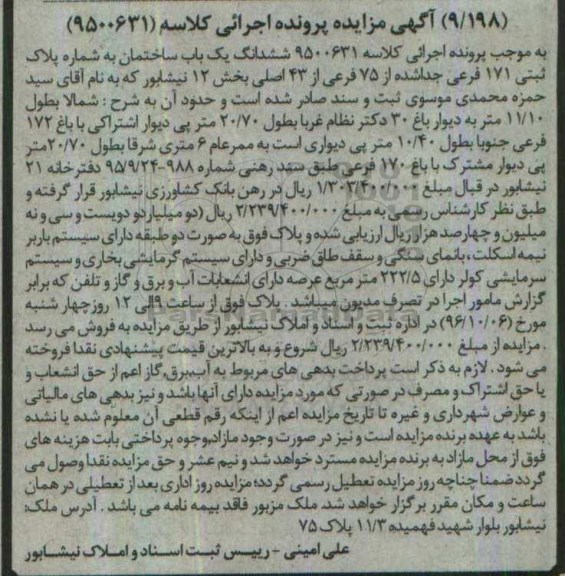 (۹/۱۹۸) آگهی مزایده پرونده اجرائی کلاسه (۹۵۰۰۶۳۱)
به موجب پرونده اجرائی کلاسه ۹۵۰۰۶۳۱ ششدانگ یک باب ساختمان به شماره پلاک
ثبتی ۱۷۱ فرعی جداشده از ۷۵ فرعی از ۴۳ اصلی بخش ۱۲ نیشابور که به نام آقای سید
حمزه محمدی موسوی ثبت و سند صادر شده است و حدود آن به شرح : شمالا بطول
۱۱/۱۰ متر به دیوار باغ ۳۰ دکتر نظام غربا بطول ۲۰/۷۰ متر پی دیوار اشتراکی با باغ ۱۷۲
فرعی جنوبا بطول ۱۰/۴۰ متر پی دیواری است به ممرعام ۶ متری شرقا بطول ۲۰/۷۰متر
پی دیوار مشترک با باغ ۱۷۰ فرعی طبق سند رهنی شماره ۹۸۸-۹۵/۹/۲۴ دفترخانه ۲۱
نیشابور در قبال مبلغ ۱/۳۰۳/۴۰۰/۰۰۰ ریال در رهن بانک کشاورزی نیشابور قرار گرفته و
طبق نظر کارشناس رسمی به مبلغ ۲/۲۳۹/۴۰۰/۰۰۰ ریال (دو میلیارد و دویست و سی و نه
میلیون و چهارصد هزار ریال ارزیابی شده و پلاک فوق به صورت دو طبقه دارای سیستم باربر
نیمه اسکلت، بانمای سنگی و سقف طاق ضربی و دارای سیستم گرمایشی بخاری و سیستم
سرمایشی کولر دارای ۲۲۲/۵ متر مربع عرصه دارای انشعابات آب و برق و گاز و تلفن که برابر
گزارش مامور اجرا در تصرف مدیون میباشد . پلاک فوق از ساعت ۹ الی ۱۲ روز چهار شنبه
مورخ (۹۶/۱۰/۰۶) در اداره ثبت و اسناد و املاک نیشابور از طریق مزایده به فروش می رسد
. مزایده از مبلغ ۲/۲۳۹/۴۰۰/۰۰۰ ریال شروع و به بالاترین قیمت پیشنهادی نقدا فروخته
می شود . لازم به ذکر است پرداخت بدهی های مربوط به آب،برق،گاز اعم از حق انشعاب و
یا حق اشتراک و مصرف در صورتی که مورد مزایده دارای آنها باشد و نیز بدهی های مالیاتی
و عوارض شهرداری و غیره تا تاریخ مزایده اعم از اینکه رقم قطعی آن معلوم شده یا نشده
باشد به عهده برنده مزایده است و نیز در صورت وجود مازاد،وجوه پرداختی بابت هزینه های
فوق از محل مازاد به برنده مزایده مسترد خواهد شد و نیم عشر و حق مزایده نقدا وصول می
گردد ضمنا چناچه روز مزایده تعطیل رسمی گردد؛ مزایده روز اداری بعد از تعطیلی در همان
ساعت و مکان مقرر برگزار خواهد شد. ملک مزبور فاقد بیمه نامه می باشد . آدرس ملک:
نیشابور بلوار شهید فهمیده ۱۱/۳ پلاک ۷۵
علی امینی - رییس ثبت اسناد و املاک نیشابور